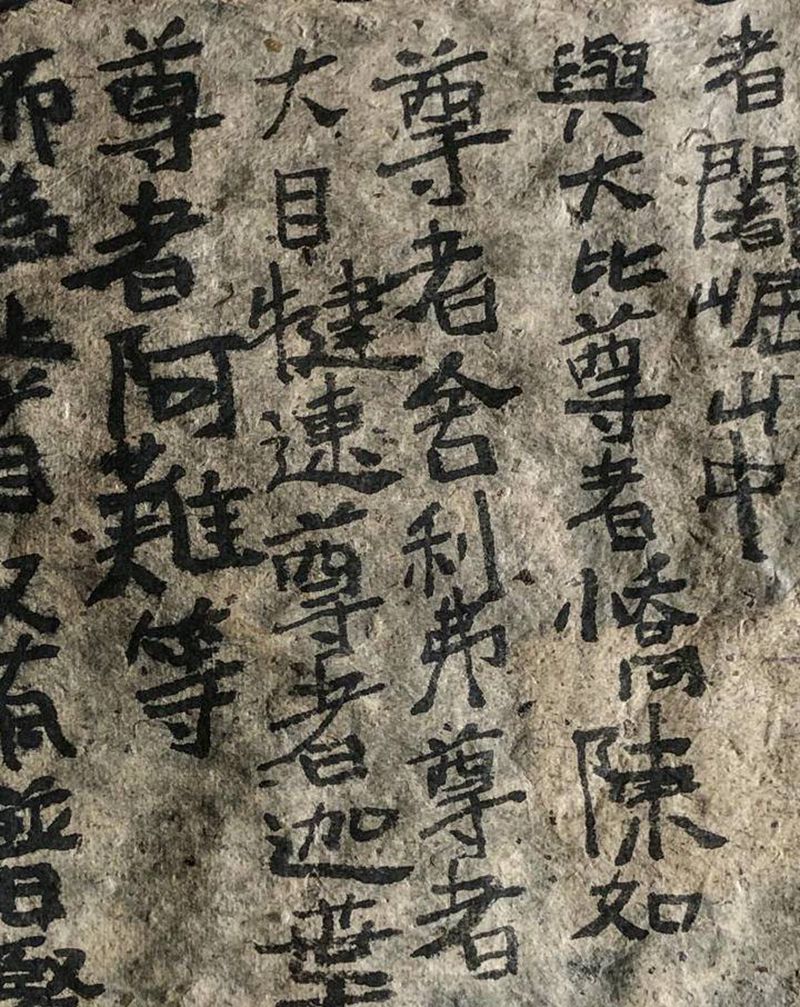 者闍崛山中
與大比尊者憍陳如
尊者舍利弗尊者
大目犍連尊者迦葉
尊者阿難等
而為上首又有普賢